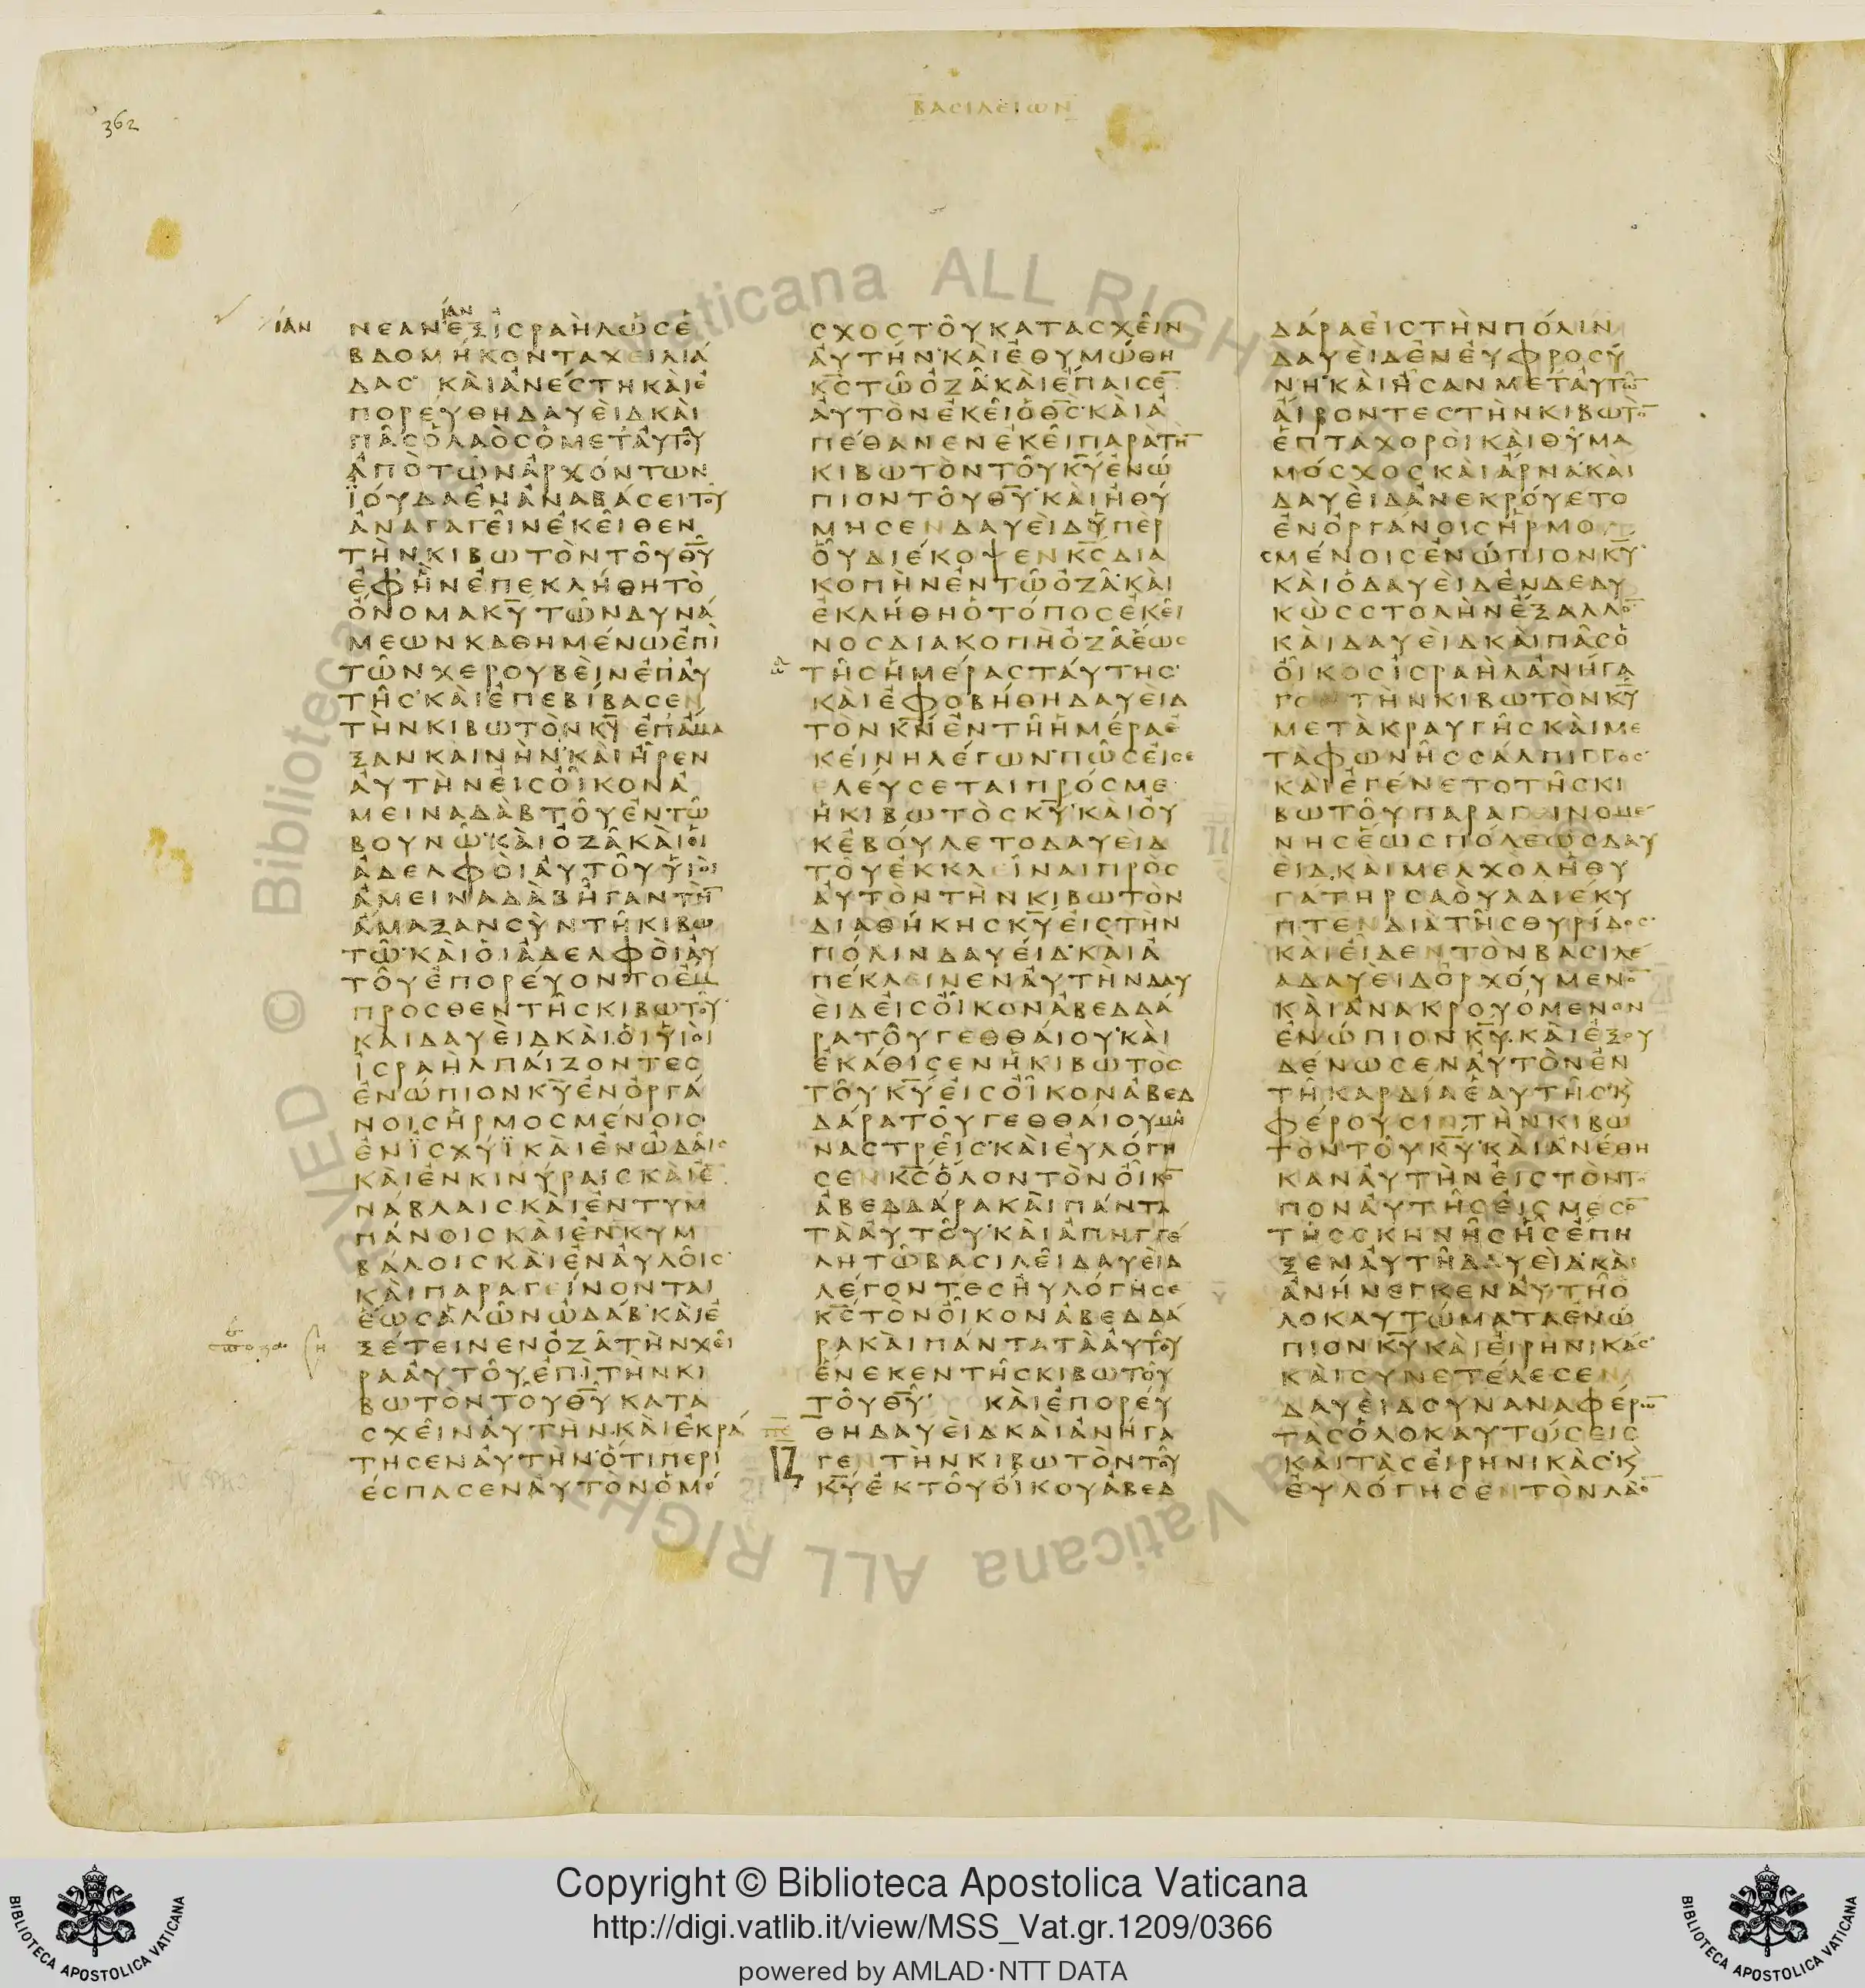 362
ΒΑCΙΛΕΙΩΝ
ΙΑΝ
ΙΑΝ
ΝΕΑΝΕΞΙCΡΑΗΛΩCΕ
ΒΔΟΜΗΚΟΝΤΑΧΕΙΛΙΑ
ΔΑC ΚΑΙΑΝΕCΤΗΚΑΙΕ
ΠΟΡΕΥΘΗΔΑΥΕΙΔΚΑΙ
ΠΑCΟΛΑΟCΟΜΕΤΑΥΤΟΥ
ΑΠΟΤΩΝΑΡΧΟΝΤΩΝ
ΪΟΥΔΑΕΝΑΝΑΒΑCΕΙΤΟΥ
ΑΝΑΓΑΓΕΙΝΕΚΕΙΘΕΝ
ΤΗΝΚΙΒΩΤΟΝΤΟΥΘ̅Υ̅
ΕΦΗΝΕΠΕΚΛΗΘΗΤΟ
ΟΝΟΜΑΚ̅Υ̅ΤΩΝΔΥΝΑ
ΜΕΩΝΚΑΘΗΜΕΝΩΕΠΙ
ΤΩΝΧΕΡΟΥΒΕΙΝΕΠΑΥ
ΤΗC·ΚΑΙΕΠΕΒΙΒΑCΕΝ
ΤΗΝΚΙΒΩΤΟΝΚ̅Υ̅ΕΠΑΜΑ
ΞΑΝΚΑΙΝΗΝ·ΚΑΙΗΡΕΝ
ΑΥΤΗΝΕΙCΟΙΚΟΝΑ
ΜΕΙΝΑΔΑΒΤΟΥΕΝΤΩ
ΒΟΥΝΩ·ΚΑΙΟΖΑΚΑΙΟΙ
ΑΔΕΛΦΟΙΑΥΤΟΥΥΙΟΙ
ΑΜΕΙΝΑΔΑΒΗΓΑΝΤΗ̅
ΑΜΑΞΑΝCΥΝΤΗΚΙΒΩ
ΤΩ·ΚΑΙΟΙΑΔΕΛΦΟΙΑΥ
ΤΟΥΕΠΟΡΕΥΟΝΤΟΕΜ
ΠΡΟCΘΕΝΤΗCΚΙΒΩΤΟΥ·
ΚΑΙΔΑΥΕΙΔΚΑΙΟΙΥΙΟΙ
ΙCΡΑΗΛΠΑΙΖΟΝΤΕC
ΕΝΩΠΙΟΝΚ̅Υ̅ΕΝΟΡΓΑ
ΝΟΙCΗΡΜΟCΜΕΝΟΙC
ΕΝΪCΧΥΪΚΑΙΕΝΩΔΑΙC
ΚΑΙΕΝΚΙΝΥΡΑΙCΚΑΙΕ̅
ΝΑΒΛΑΙCΚΑΙΕΝΤΥΜ
ΠΑΝΟΙCΚΑΙΕΝΚΥΜ
ΒΑΛΟΙCΚΑΙΕΝΑΥΛΟΙC·
ΚΑΙΠΑΡΑΓΕΙΝΟΝΤΑΙ
ΕΩCΑΛΩΝΩΔΑΒ·ΚΑΙΕ
ΞΕΤΕΙΝΕΝΟΖΑΤΗΝΧΕΙ
ΡΑΑΥΤΟΥΕΠΙΤΗΝΚΙ
ΒΩΤΟΝΤΟΥΘ̅Υ̅ΚΑΤΑ
CΧΕΙΝΑΥΤΗΝ·ΚΑΙΕΚΡΑ
ΤΗCΕΝΑΥΤΗΝ·ΟΤΙΠΕΡΙ
ΕCΠΑCΕΝΑΥΤΟΝΟΜΟ
CΧΟCΤΟΥΚΑΤΑCΧΕΙΝ
ΑΥΤΗΝ·ΚΑΙΕΘΥΜΩΘΗ
Κ̅C̅ΤΩΟΖΑ·ΚΑΙΕΠΑΙCΕ̅
ΑΥΤΟΝΕΚΕΙΟΘ̅C̅·ΚΑΙΑ
ΠΕΘΑΝΕΝΕΚΕΙΠΑΡΑΤΗ̅
ΚΙΒΩΤΟΝΤΟΥΚ̅Υ̅ΕΝΩ
ΠΙΟΝΤΟΥΘ̅Υ̅·ΚΑΙΗΘΥ
ΜΗCΕΝΔΑΥΕΙΔΥΠΕΡ
ΟΥΔΙΕΚΟΨΕΝΚ̅C̅ΔΙΑ
ΚΟΠΗΝΕΝΤΩΟΖΑ·ΚΑΙ
ΕΚΛΗΘΗΟΤΟΠΟCΕΚΕΙ
ΝΟCΔΙΑΚΟΠΗΟΖΑΕΩC
ΤΗCΗΜΕΡΑCΤΑΥΤΗC·
ΚΑΙΕΦΟΒΗΘΗΔΑΥΕΙΔ
ΤΟΝΚ̅Ν̅ΕΝΤΗΗΜΕΡΑΕ
ΚΕΙΝΗΛΕΓΩΝ·ΠΩCΕΙCΕ
ΛΕΥCΕΤΑΙΠΡΟCΜΕ
ΗΚΙΒΩΤΟCΚ̅Υ̅·ΚΑΙΟΥ
ΚΕΒΟΥΛΕΤΟΔΑΥΕΙΔ
ΤΟΥΕΚΚΛΕΙΝΑΙΠΡΟC
ΑΥΤΟΝΤΗΝΚΙΒΩΤΟΝ
ΔΙΑΘΗΚΗCΚ̅Υ̅ΕΙCΤΗΝ
ΠΟΛΙΝΔΑΥΕΙΔ·ΚΑΙΑ
ΠΕΚΛΕΙΝΕΝΑΥΤΗΝΔΑΥ
ΕΙΔΕΙCΟΙΚΟΝΑΒΕΔΔΑ
ΡΑΤΟΥΓΕΘΘΑΙΟΥ·ΚΑΙ
ΕΚΑΘΙCΕΝΗΚΙΒΩΤΟC
ΤΟΥΚ̅Υ̅ΕΙCΟΙΚΟΝΑΒΕΔ
ΔΑΡΑΤΟΥΓΕΘΘΑΙΟΥΜΗ
ΝΑCΤΡΕΙC·ΚΑΙΕΥΛΟΓΗ
CΕΝΚ̅C̅ΟΛΟΝΤΟΝΟΙΚΟ̅
ΑΒΕΔΔΑΡΑΚΑΙΠΑΝΤΑ
ΤΑΑΥΤΟΥ·ΚΑΙΑΠΗΓΓΕ
ΛΗΤΩΒΑCΙΛΕΙΔΑΥΕΙΔ
ΛΕΓΟΝΤΕCΗΥΛΟΓΗCΕ
Κ̅C̅ΤΟΝΟΙΚΟΝΑΒΕΔΔΑ
ΡΑΚΑΙΠΑΝΤΑΤΑΑΥΤΟΥ
ΕΝΕΚΕΝΤΗCΚΙΒΩΤΟΥ
ΤΟΥΘ̅Υ̅· ΚΑΙΕΠΟΡΕΥ
ΘΗΔΑΥΕΙΔΚΑΙΑΝΗΓΑ
ΓΕΝΤΗΝΚΙΒΩΤΟΝΤΟΥ
Κ̅Υ̅ΕΚΤΟΥΟΙΚΟΥΑΒΕΔ
ΔΑΡΑΕΙCΤΗΝΠΟΛΙΝ
ΔΑΥΕΙΔΕΝΕΥΦΡΟCΥ
ΝΗ·ΚΑΙΗCΑΝΜΕΤΑΥΤΩ̅
ΑΙΡΟΝΤΕCΤΗΝΚΙΒΩΤΟ̅
ΕΠΤΑΧΟΡΟΙΚΑΙΘΥΜΑ
ΜΟCΧΟCΚΑΙΑΡΝΑ·ΚΑΙ
ΔΑΥΕΙΔΑΝΕΚΡΟΥΕΤΟ
ΕΝΟΡΓΑΝΟΙCΗΡΜΟ
CΜΕΝΟΙCΕΝΩΠΙΟΝΚ̅Υ̅·
ΚΑΙΟΔΑΥΕΙΔΕΝΔΕΔΥ
ΚΩCCΤΟΛΗΝΕΞΑΛΛΟ̅
ΚΑΙΔΑΥΕΙΔΚΑΙΠΑCΟ
ΟΙΚΟCΙCΡΑΗΛΑΝΗΓΑ
ΓΟΝΤΗΝΚΙΒΩΤΟΝΚ̅Υ̅
ΜΕΤΑΚΡΑΥΓΗCΚΑΙΜΕ
ΤΑΦΩΝΗCCΑΛΠΙΓΓΟC·
ΚΑΙΕΓΕΝΕΤΟΤΗCΚΙ
ΒΩΤΟΥΠΑΡΑΓΕΙΝΟΜΕ
ΝΗCΕΩCΠΟΛΕΩCΔΑΥ
ΕΙΔ·ΚΑΙΜΕΛΧΟΛΗΘΥ
ΓΑΤΗΡCΑΟΥΛΔΙΕΚΥ
ΠΤΕΝΔΙΑΤΗCΘΥΡΙΔΟC·
ΚΑΙΕΙΔΕΝΤΟΝΒΑCΙΛΕ
ΑΔΑΥΕΙΔΟΡΧΟΥΜΕΝΟ̅
ΚΑΙΑΝΑΚΡΟΥΟΜΕΝΟΝ
ΕΝΩΠΙΟΝΚ̅Υ̅·ΚΑΙΕΞΟΥ
ΔΕΝΩCΕΝΑΥΤΟΝΕΝ
ΤΗΚΑΡΔΙΑΕΑΥΤΗC·Κ
ΦΕΡΟΥCΙΝΤΗΝΚΙΒΩ
ΤΟΝΤΟΥΚ̅Υ̅·ΚΑΙΑΝΕΘΗ
ΚΑΝΑΥΤΗΝΕΙCΤΟΝΤΟ
ΠΟΝΑΥΤΗCΕΙCΜΕCΟ̅
ΤΗCCΚΗΝΗCΗCΕΠΗ
ΞΕΝΑΥΤΗΔΑΥΕΙΔ·ΚΑΙ
ΑΝΗΝΕΓΚΕΝΑΥΤΗΟ
ΛΟΚΑΥΤΩΜΑΤΑΕΝΩ
ΠΙΟΝΚ̅Υ̅ΚΑΙΕΙΡΗΝΙΚΑC·
ΚΑΙCΥΝΕΤΕΛΕCΕΝ
ΔΑΥΕΙΔCΥΝΑΝΑΦΕΡΩ̅
ΤΑCΟΛΟΚΑΥΤΩCΕΙC
ΚΑΙΤΑCΕΙΡΗΝΙΚΑC·Κ
ΕΥΛΟΓΗCΕΝΤΟΝΛΑΟ̅
Copyright © Biblioteca Apostolica Vaticana
http://digi.vatlib.it/view/MSS_Vat.gr.1209/0366
powered by AMLAD·NTT DATA
BIBLIOTECA APOSTOLICA VATICANA
BIBLIOTECA APOSTOLICA VATICANA